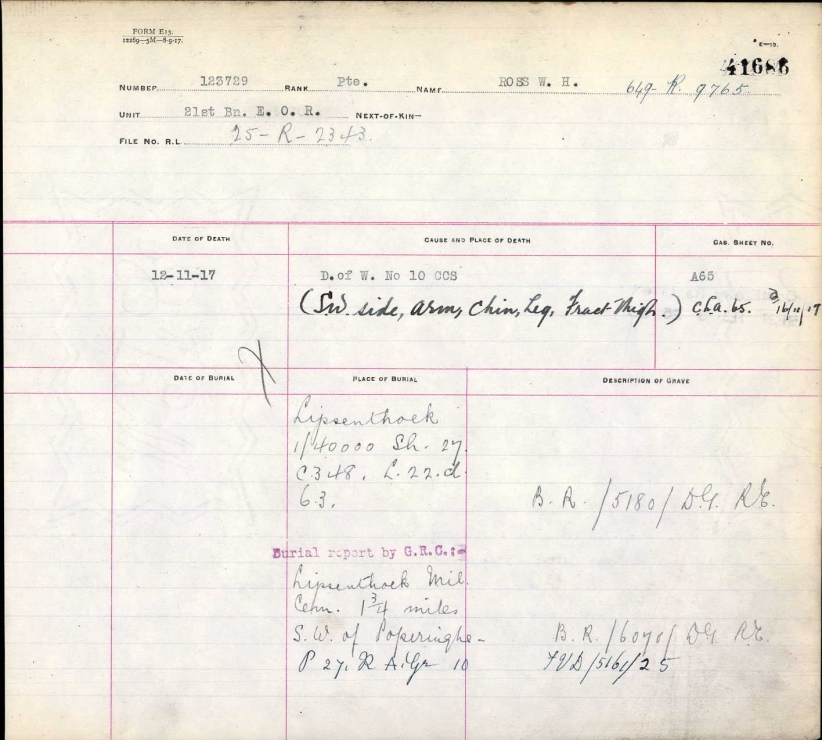 FORM E13.
12269—5M—8-9-17.
E—13.
41686
NUMBER 123729 RANK Pte. NAME ROSS W. H. 649- R. 9765.
UNIT 21st Bn. E. O. R. NEXT-OF-KIN—
FILE No. R.L. 25-R-2343.
DATE OF DEATH CAUSE AND PLACE OF DEATH CAS. SHEET No.
12-11-17 D.of W. No 10 CCS A65
(S.W. side, arm, Chin, Leg, Fract Thigh.) C.L.a.65. 16/11/17
DATE OF BURIAL PLACE OF BURIAL DESCRIPTION OF GRAVE
Lijssenthoek
1/40000 Sh. 27.
C.348. L.22.d.
6.3. B.R. /5180/ D.G. R.E.
Burial report by G.R.C.:-
Lijssenthoek Mil.
Cem. 1 3/4 miles
S.W. of Poperinghe- B.R. /6070/ D.G. R.E.
P 27. R A. Gr 10 /5161/25